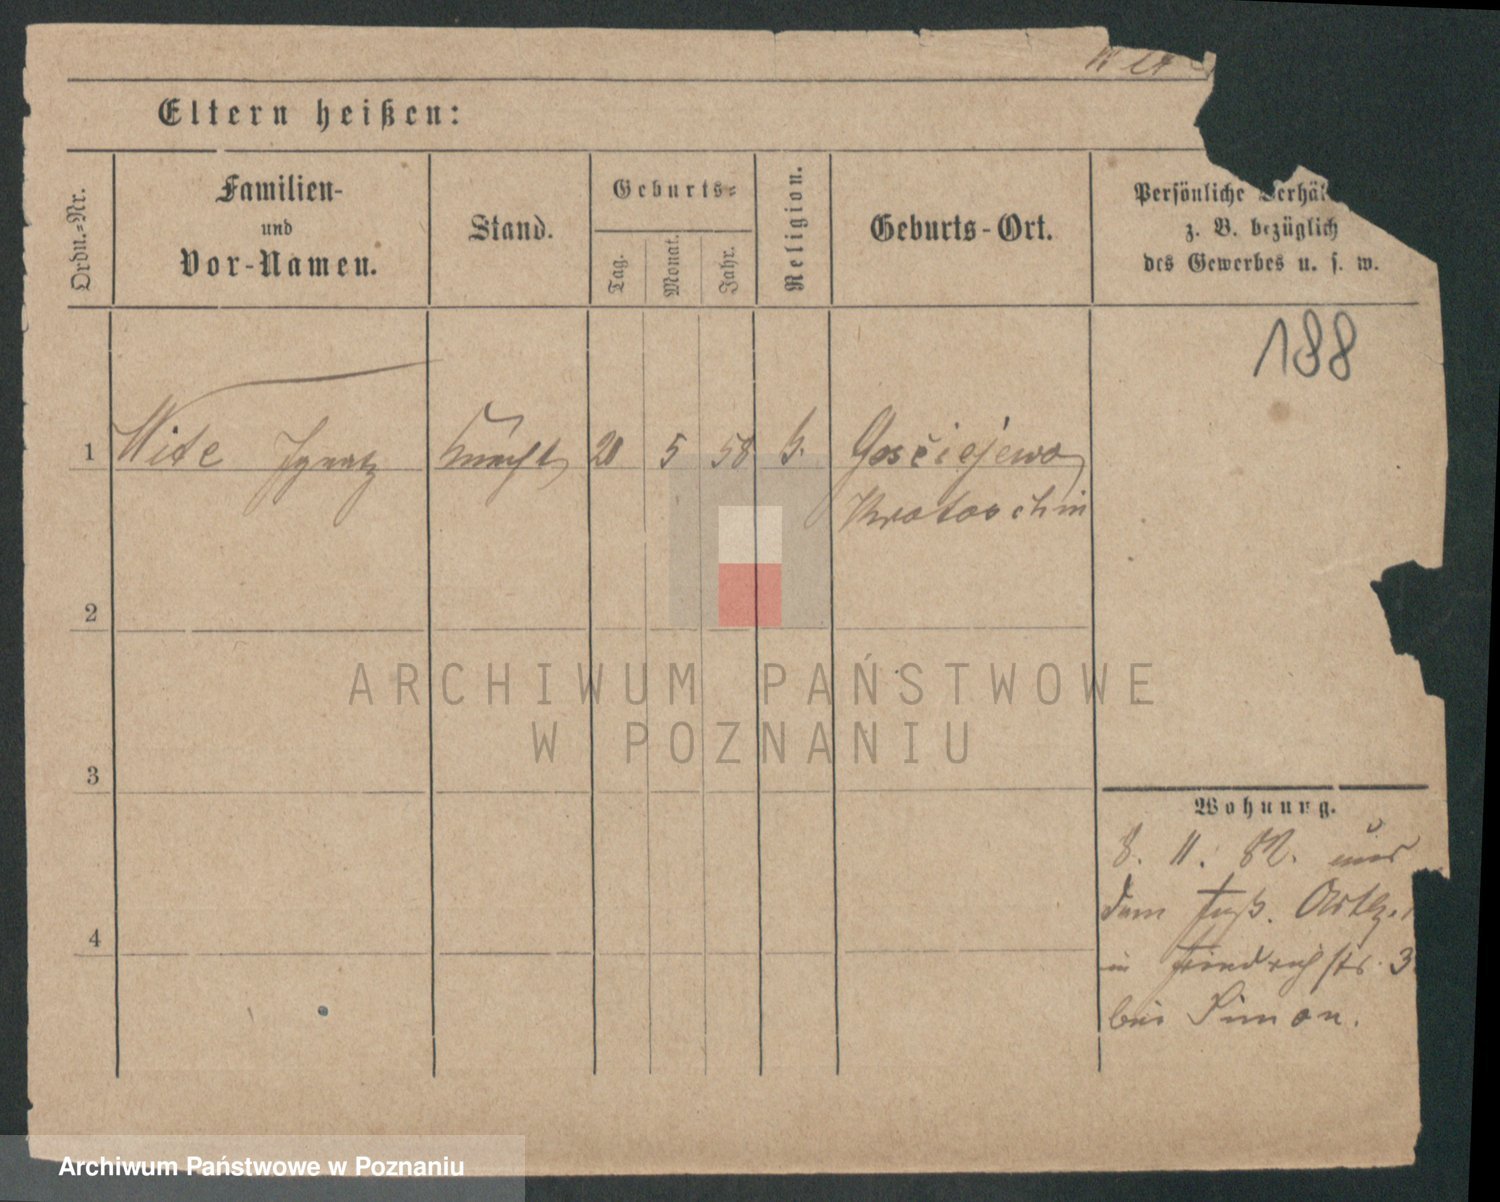 Eltern heißen:
Ordn.=Nr.
Familien-
und
Vor-Namen.
Stand.
Geburts=
Tag.
Monat.
Jahr.
Religion.
Geburts-Ort.
Persönliche Verhäl
z. B. bezüglich
des Gewerbes u. s. w.
188
1 Witt Ignatz Knecht 20 5 58 k. Gościejewo
Krotoschin
2
3
4
Wohnung.
8. 11. 82. aus
dem
in Friedrichstr. 3
bei Simon.
ARCHIWUM PAŃSTWOWE
W POZNANIU
Archiwum Państwowe w Poznaniu